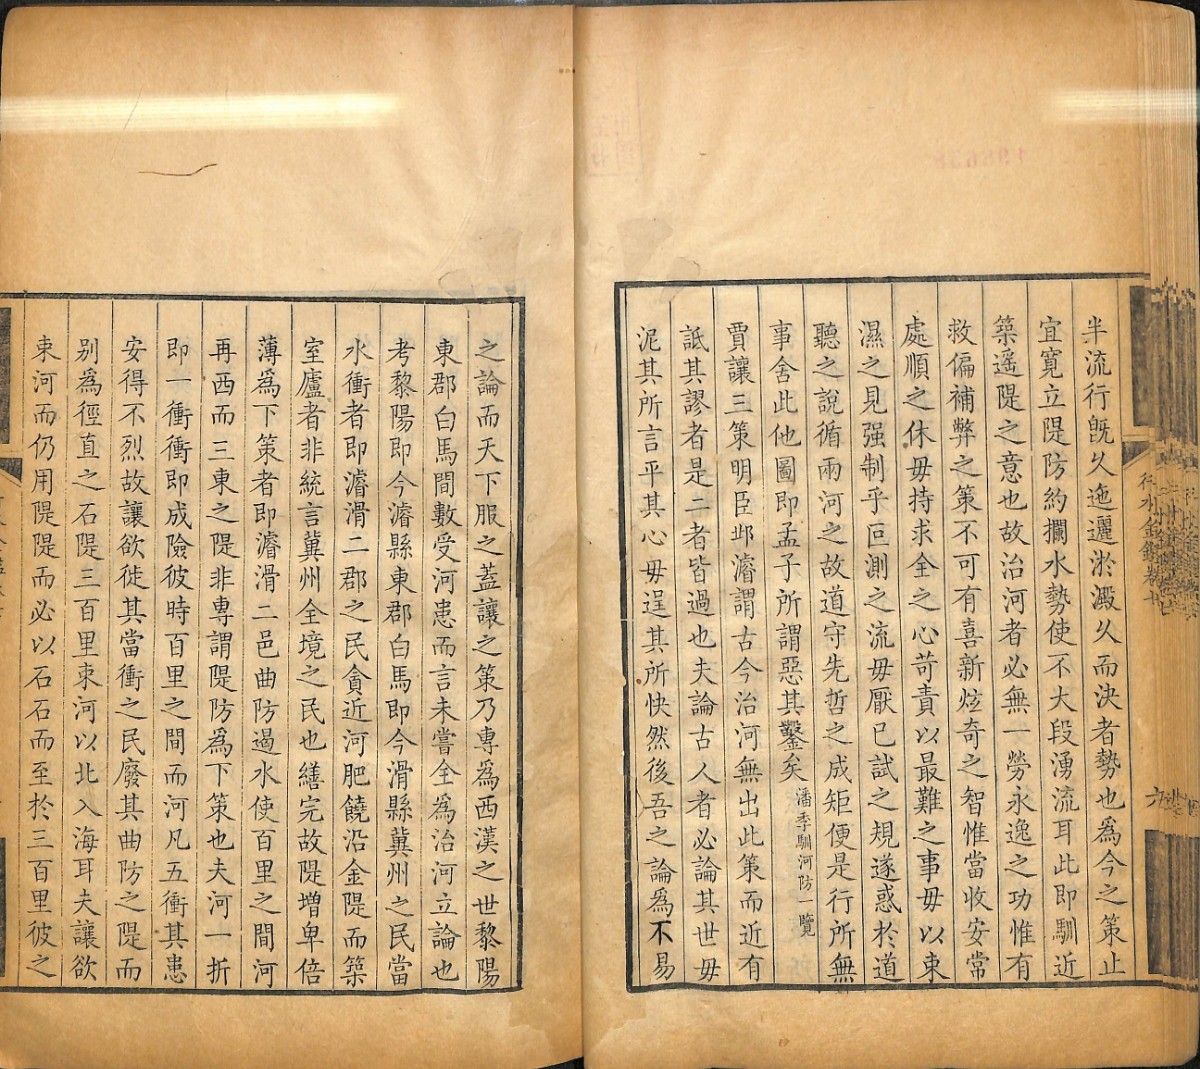 半流行旣久迤邐淤澱久而決者勢也爲今之策止
宜寬立隄防約攔水勢使不大段湧流耳此即馴近
築遥隄之意也故治河者必無一勞永逸之功惟有
救偏補弊之策不可有喜新炫奇之智惟當收安常
處順之休毋持求全之心苛責以最難之事毋以束
濕之見强制乎叵測之流毋厭已試之規遂惑於道
聽之說循兩河之故道守先哲之成矩便是行所無
事舍此他圖即孟子所謂惡其鑿矣潘季馴河防一覽
賈讓三策明臣邱濬謂古今治河無出此策而近有
詆其謬者是二者皆過也夫論古人者必論其世毋
泥其所言平其心毋逞其所快然後吾之論爲不易
之論而天下服之蓋讓之策乃專爲西漢之世黎陽
東郡白馬間數受河患而言未嘗全爲治河立論也
考黎陽即今濬縣東郡白馬即今滑縣冀州之民當
水衝者即濬滑二郡之民貪近河肥饒沿金隄而築
室廬者非統言冀州全境之民也繕完故隄增卑倍
薄爲下策者即濬滑二邑曲防遏水使百里之間河
再西而三東之隄非專謂隄防爲下策也夫河一折
即一衝衝即成險彼時百里之間而河凡五衝其患
安得不烈故讓欲徙其當衝之民廢其曲防之隄而
别爲徑直之石隄三百里束河以北入海耳夫讓欲
束河而仍用隄隄而必以石石而至於三百里彼之
行水金鑑卷
六